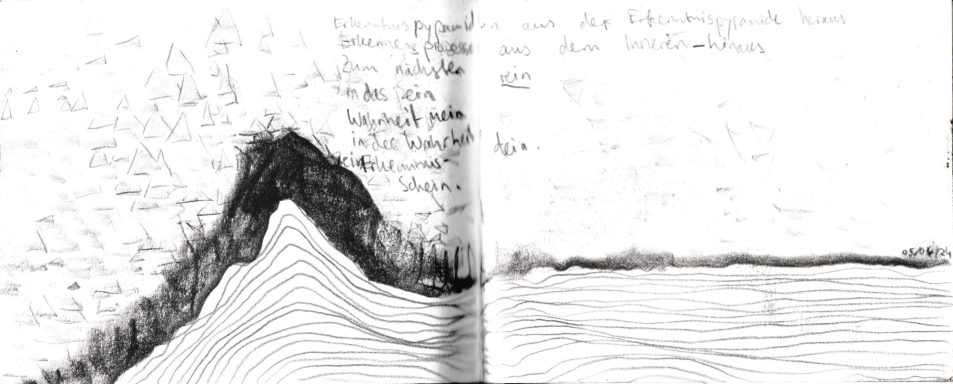 Erkenntnispyramiden aus der Erkenntnispyramide heraus
Erkennensprozesse aus dem Inneren-hinaus
Zum nächsten rein
in das Dein
Wahrheit mein
in der Wahrheit dein.
kein Erkenntnis-
Schein.
05/04/24